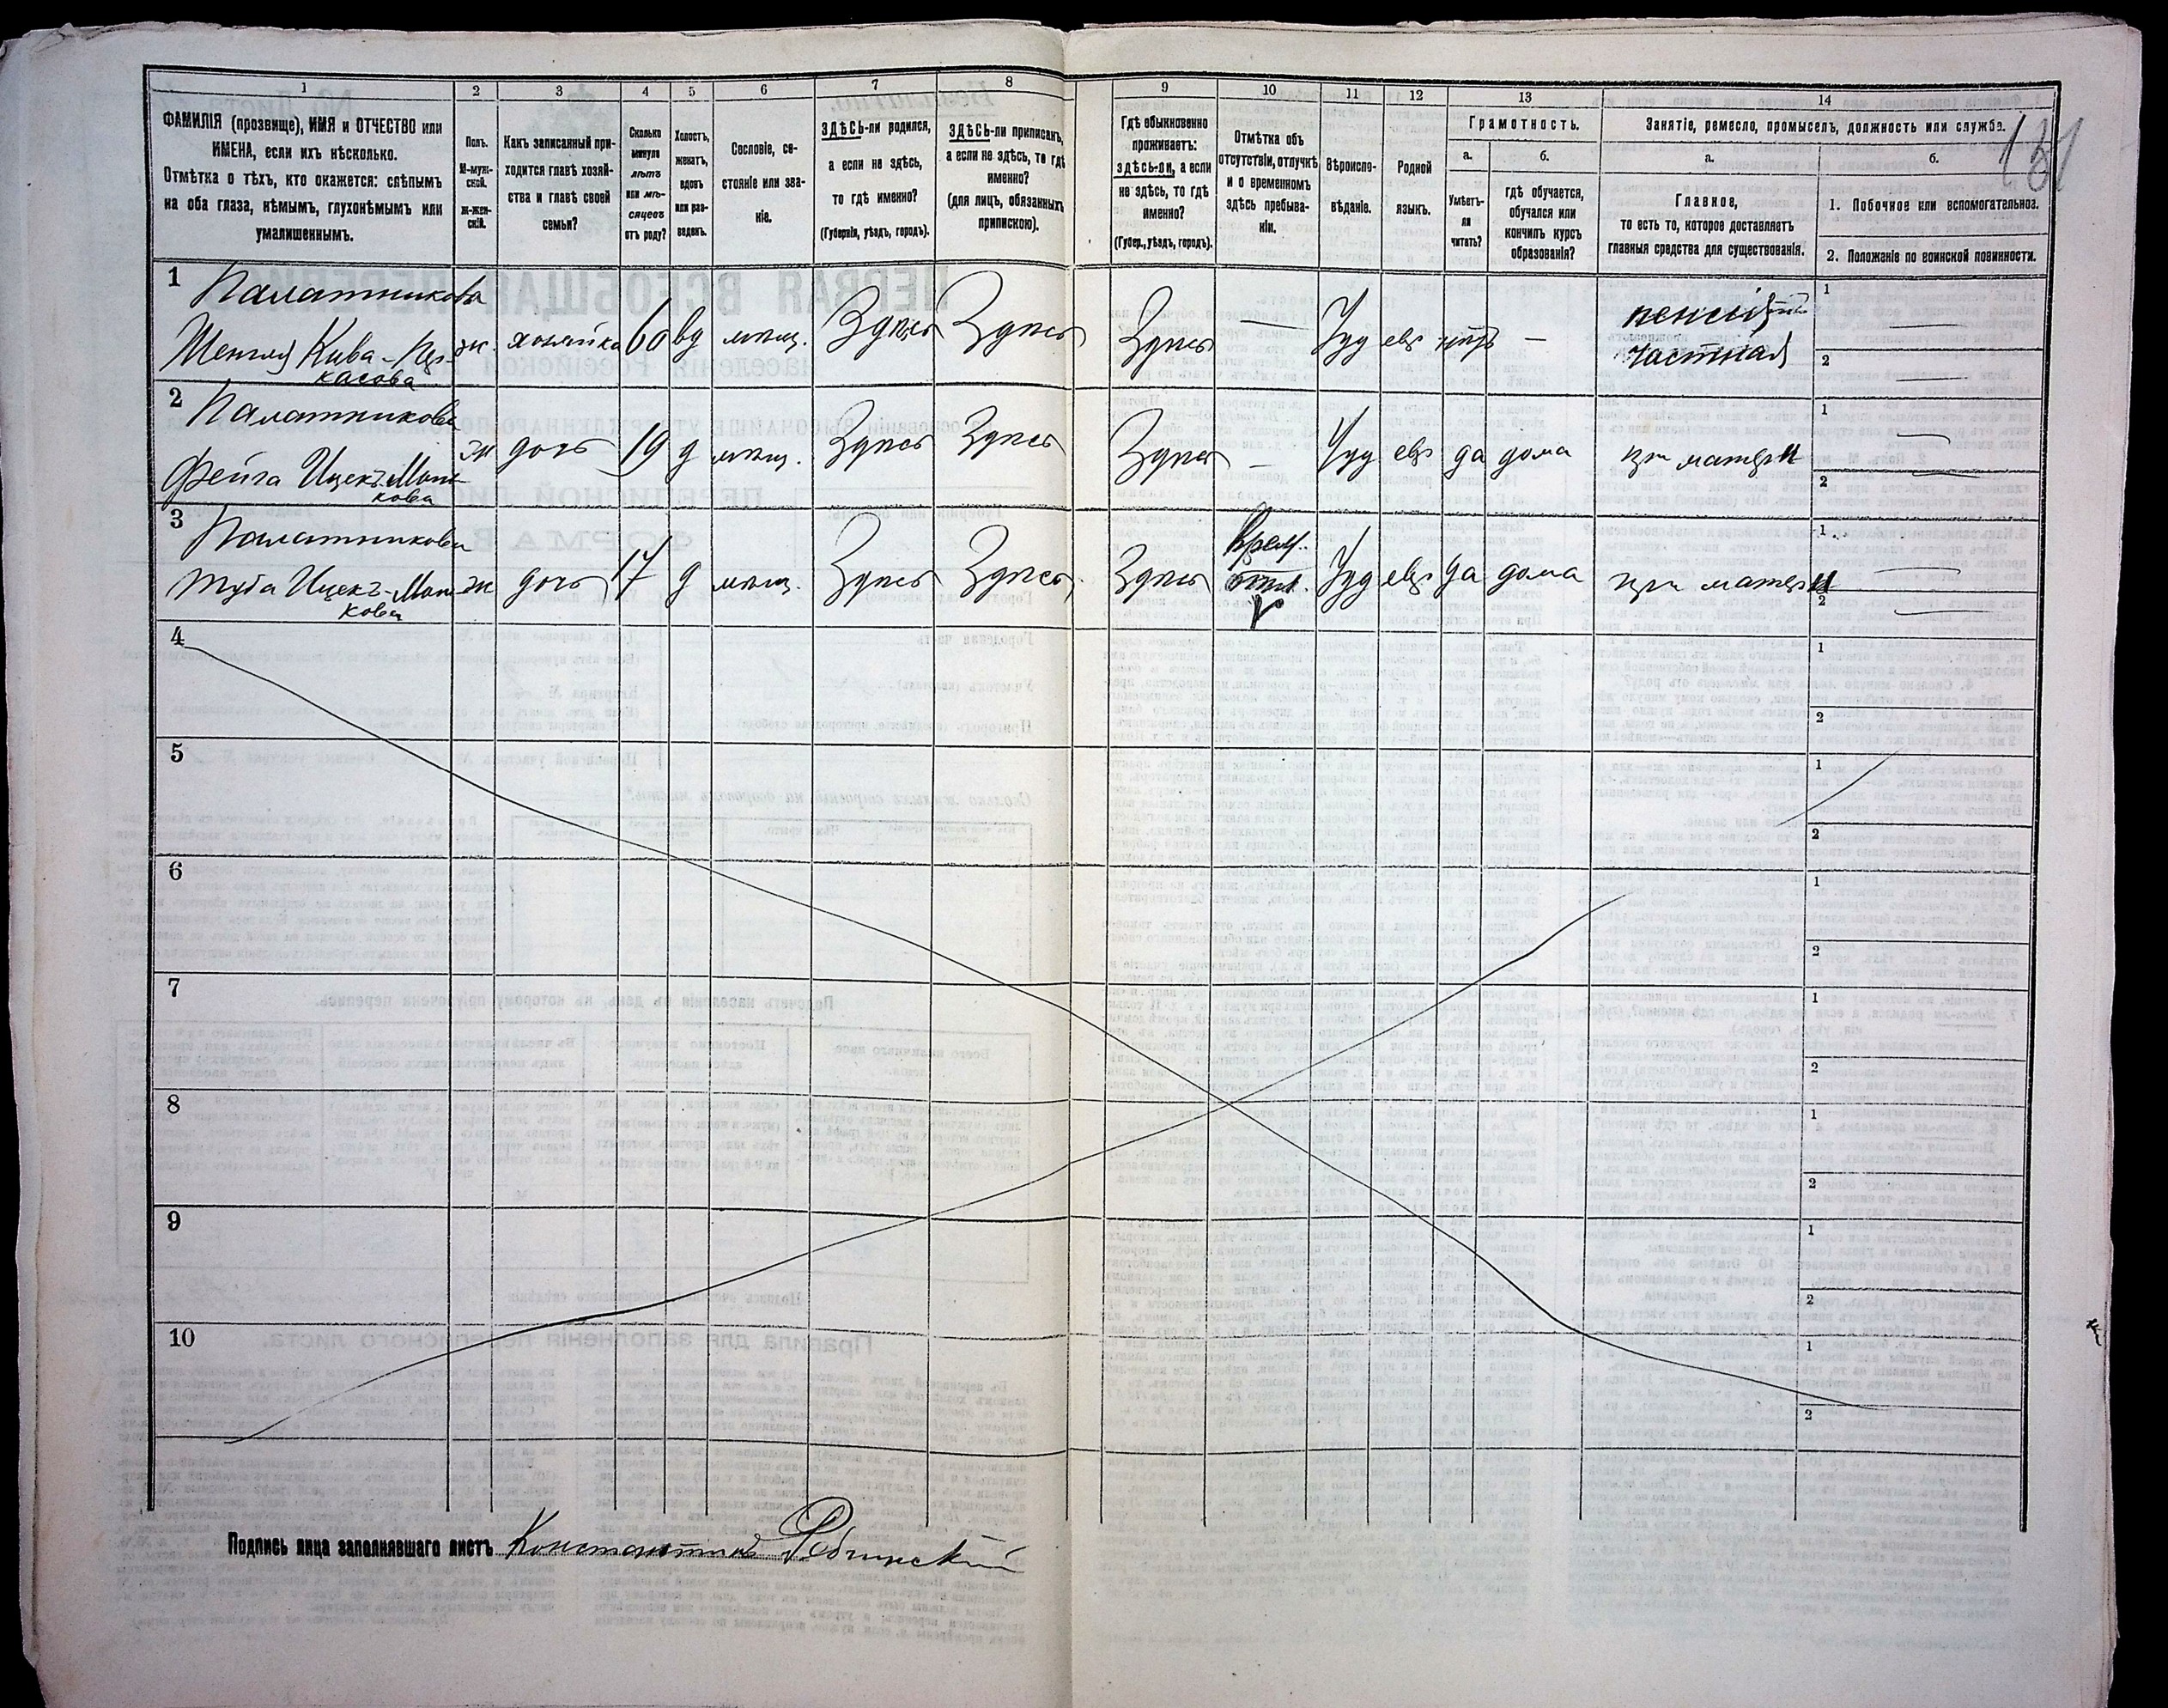 131
1 2 3 4 5 6 7 8 9 10 11 12 13 14
ФАМИЛІЯ (прозвище), ИМЯ и ОТЧЕСТВО или
ИМЕНА, если ихъ нѣсколько.
Отмѣтка о тѣхъ, кто окажется: слѣпымъ
на оба глаза, нѣмымъ, глухонѣмымъ или
умалишеннымъ.
Полъ.
М-муж-
ской.
Ж-жен-
скій.
Какъ записанный при-
ходится главѣ хозяй-
ства и главѣ своей
семьи?
Сколько
минуло
лѣтъ
или мѣ-
сяцевъ
отъ роду?
Холостъ,
женатъ,
вдовъ
или раз-
веденъ.
Сословіе, со-
стояніе или зва-
ніе.
ЗДѢСЬ-ли родился,
а если не здѣсь,
то гдѣ именно?
(Губернія, уѣздъ, городъ).
ЗДѢСЬ-ли приписанъ,
а если не здѣсь, то гдѣ
именно?
(для лицъ, обязанныхъ
припискою).
Гдѣ обыкновенно
проживаетъ:
здѣсь-ли, а если
не здѣсь, то гдѣ
именно?
(Губер., уѣздъ, городъ).
Отмѣтка объ
отсутствіи, отлучкѣ
и о временномъ
здѣсь пребыва-
ніи.
Вѣроиспо-
вѣданіе.
Родной
языкъ.
Грамотность.
а.
Умѣетъ-
ли
читать?
б.
гдѣ обучается,
обучался или
кончилъ курсъ
образованія?
Занятіе, ремесло, промыселъ, должность или служба.
а.
Главное,
то есть то, которое доставляетъ
главныя средства для существованія.
б.
1. Побочное или вспомогательное.
2. Положеніе по воинской повинности.
1 Палатникова ж. хозяйка 60 вд мѣщ. Здѣсь Здѣсь Здѣсь — Іуд евр нѣтъ —
касова
частная
1 —
2 —
2 Палатникова
Фейга Ицекъ-Мош- ж дочь 19 д мѣщ. Здѣсь Здѣсь Здѣсь — Іуд евр да дома при матери
кова
1 —
2 —
3 Палатникова
Туба Ицекъ-Мош- ж дочь 17 д мѣщ. Здѣсь Здѣсь Здѣсь врем. отл. Іуд евр да дома при матери
кова
1 —
2 —
4 1
2
5 1
2
6 1
2
7 1
2
8 1
2
9 1
2
10 1
2
Подпись лица заполнявшаго листъ Константинъ